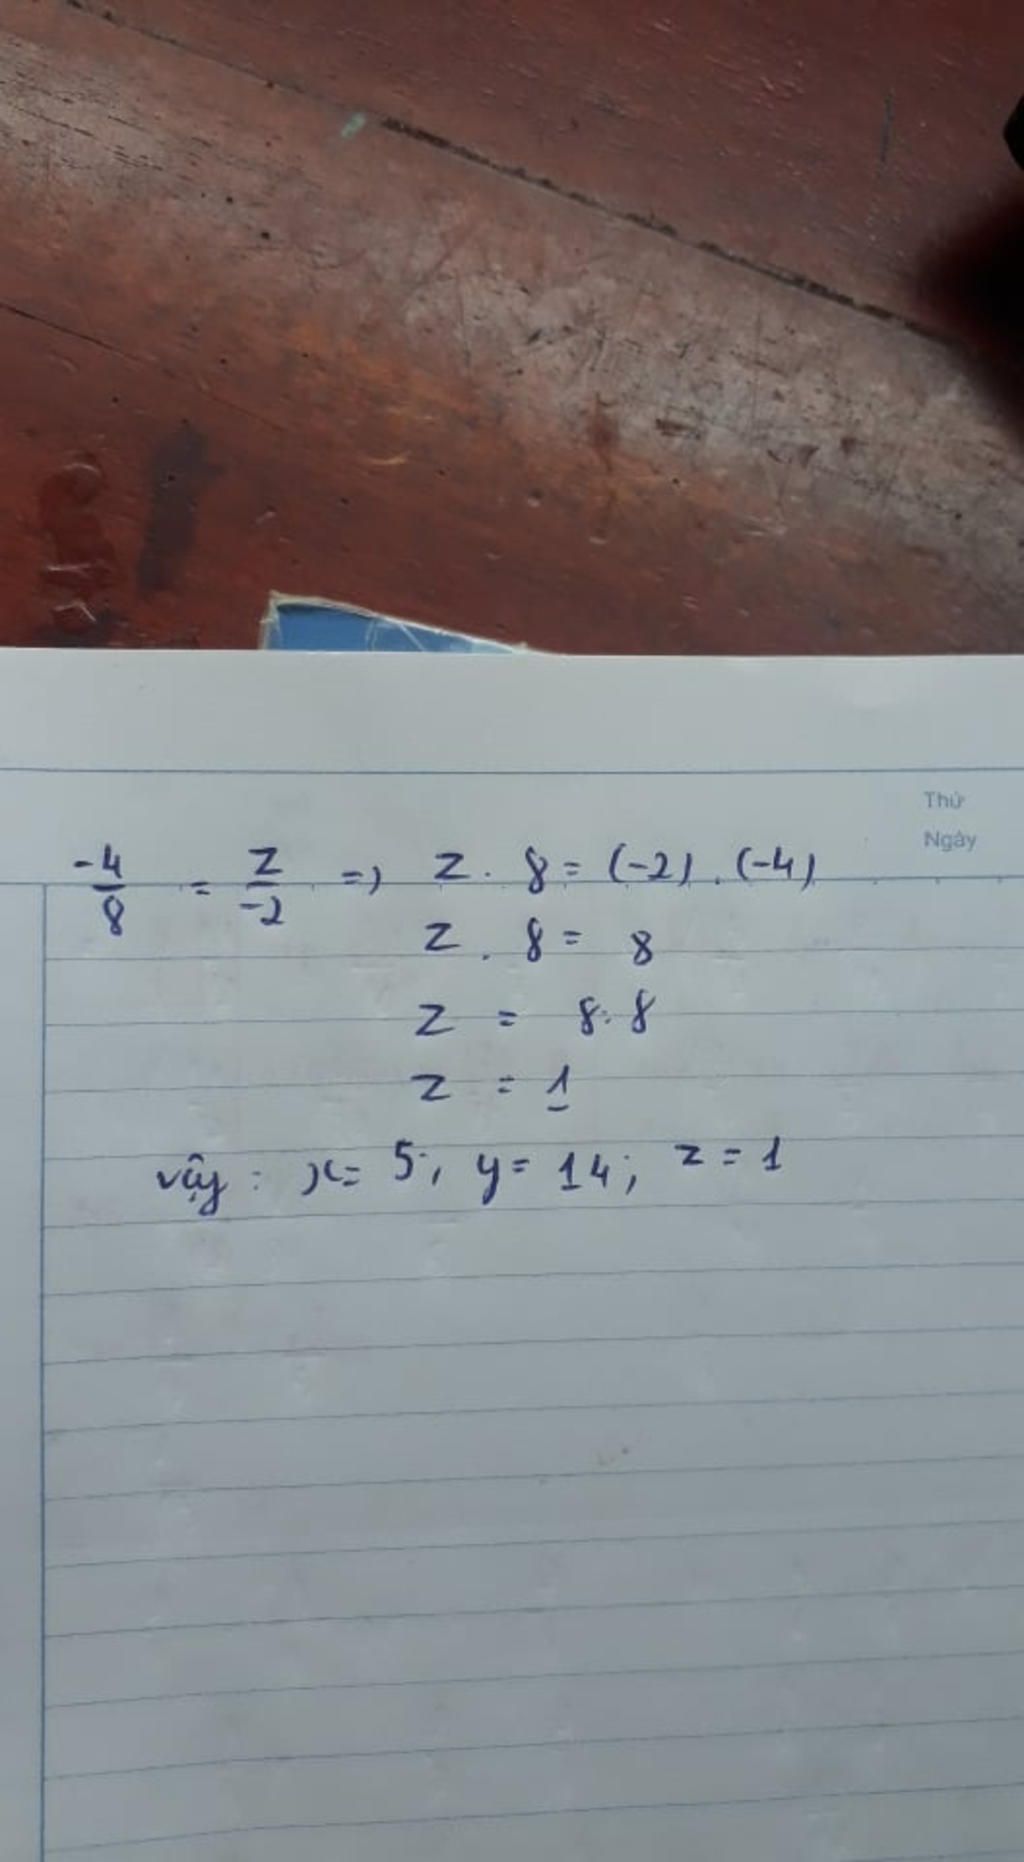 Thứ
Ngày
-4/8 = z/-2 => z . 8 = (-2) . (-4)
z . 8 = 8
z = 8:8
z = 1
vậy : x = 5; y = 14; z = 1